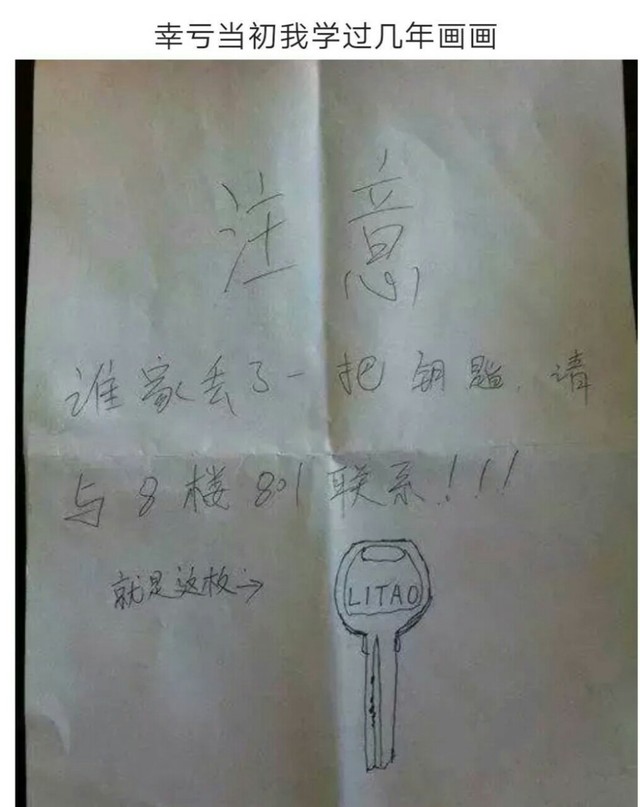 幸亏当初我学过几年画画
注意
谁家丢了一把钥匙.请
与8楼801联系!!!
就是这板→
LITAO